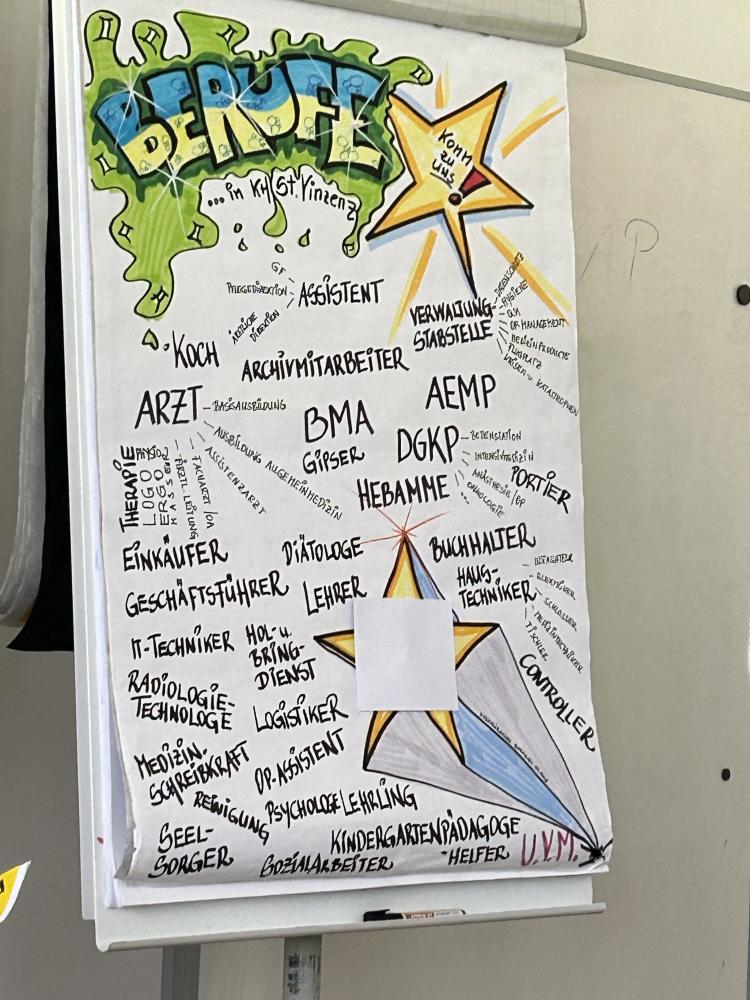 BERUFE
...in KH St. Vinzenz
Komm
zu
uns!
GF
PFLEGEDIREKTION
ÄRZTLICHE
DIREKTION
ASSISTENT
VERWALTUNG-
STABSTELLE
DATENSCHUTZ
HYGIENE
QM
OP MANAGEMENT
MEDIZINPRODUKTE
FLUGPLATZ
KRISEN- u. KATASTROPHEN
KOCH
ARCHIVMITARBEITER
ARZT
BASISAUSBILDUNG
AUSBILDUNG ALLGEMEINMEDIZIN
ASSISTENZARZT
FACHARZT/OA
ÄRZTL. LEITUNG
BMA
AEMP
GIPSER
DGKP
BETTENSTATION
INTENSIVMEDIZIN
ANÄSTHESIE/OP
ONKOLOGIE
...
PORTIER
THERAPIE
PHYSIO
LOGO
ERGO
MASSEUR
HEBAMME
EINKÄUFER
DIÄTOLOGE
BUCHHALTER
GESCHÄFTSFÜHRER
LEHRER
HAUS-
TECHNIKER
ELEKTRIKER
SCHLOSSER
MEDIZINTECHNIKER
TISCHLER
IT-TECHNIKER
HOL- u.
BRING-
DIENST
CONTROLLER
RADIOLOGIE-
TECHNOLOGE
LOGISTIKER
MEDIZIN.
SCHREIBKRAFT
OP-ASSISTENT
REINIGUNG
PSYCHOLOGE
LEHRLING
SEEL-
SORGER
KINDERGARTENPÄDAGOGE
-HELFER
SOZIALARBEITER
U.V.M.
AP